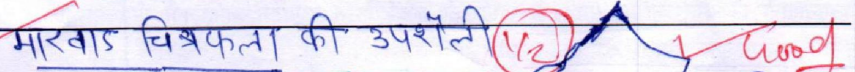 मारवाड चित्रकला की उपशैली (1/2) Good